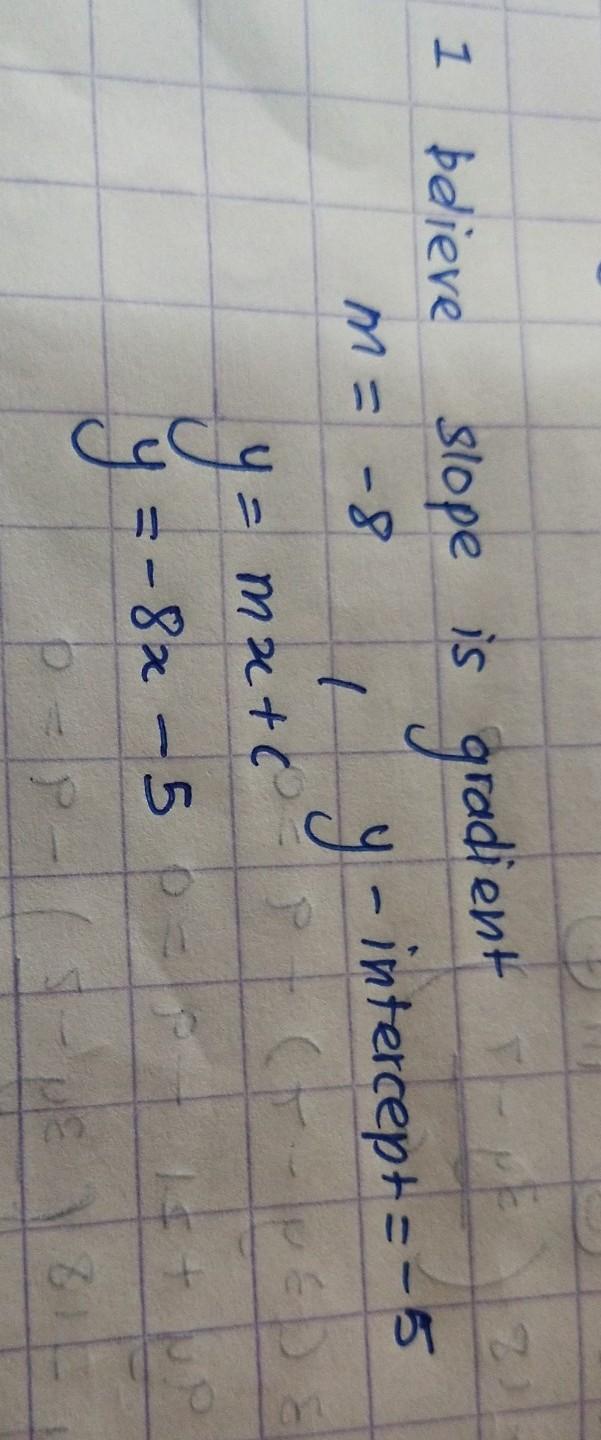 I believe slope is gradient
m = -8 , y - intercept = -5
y = mx + c
y = -8x - 5